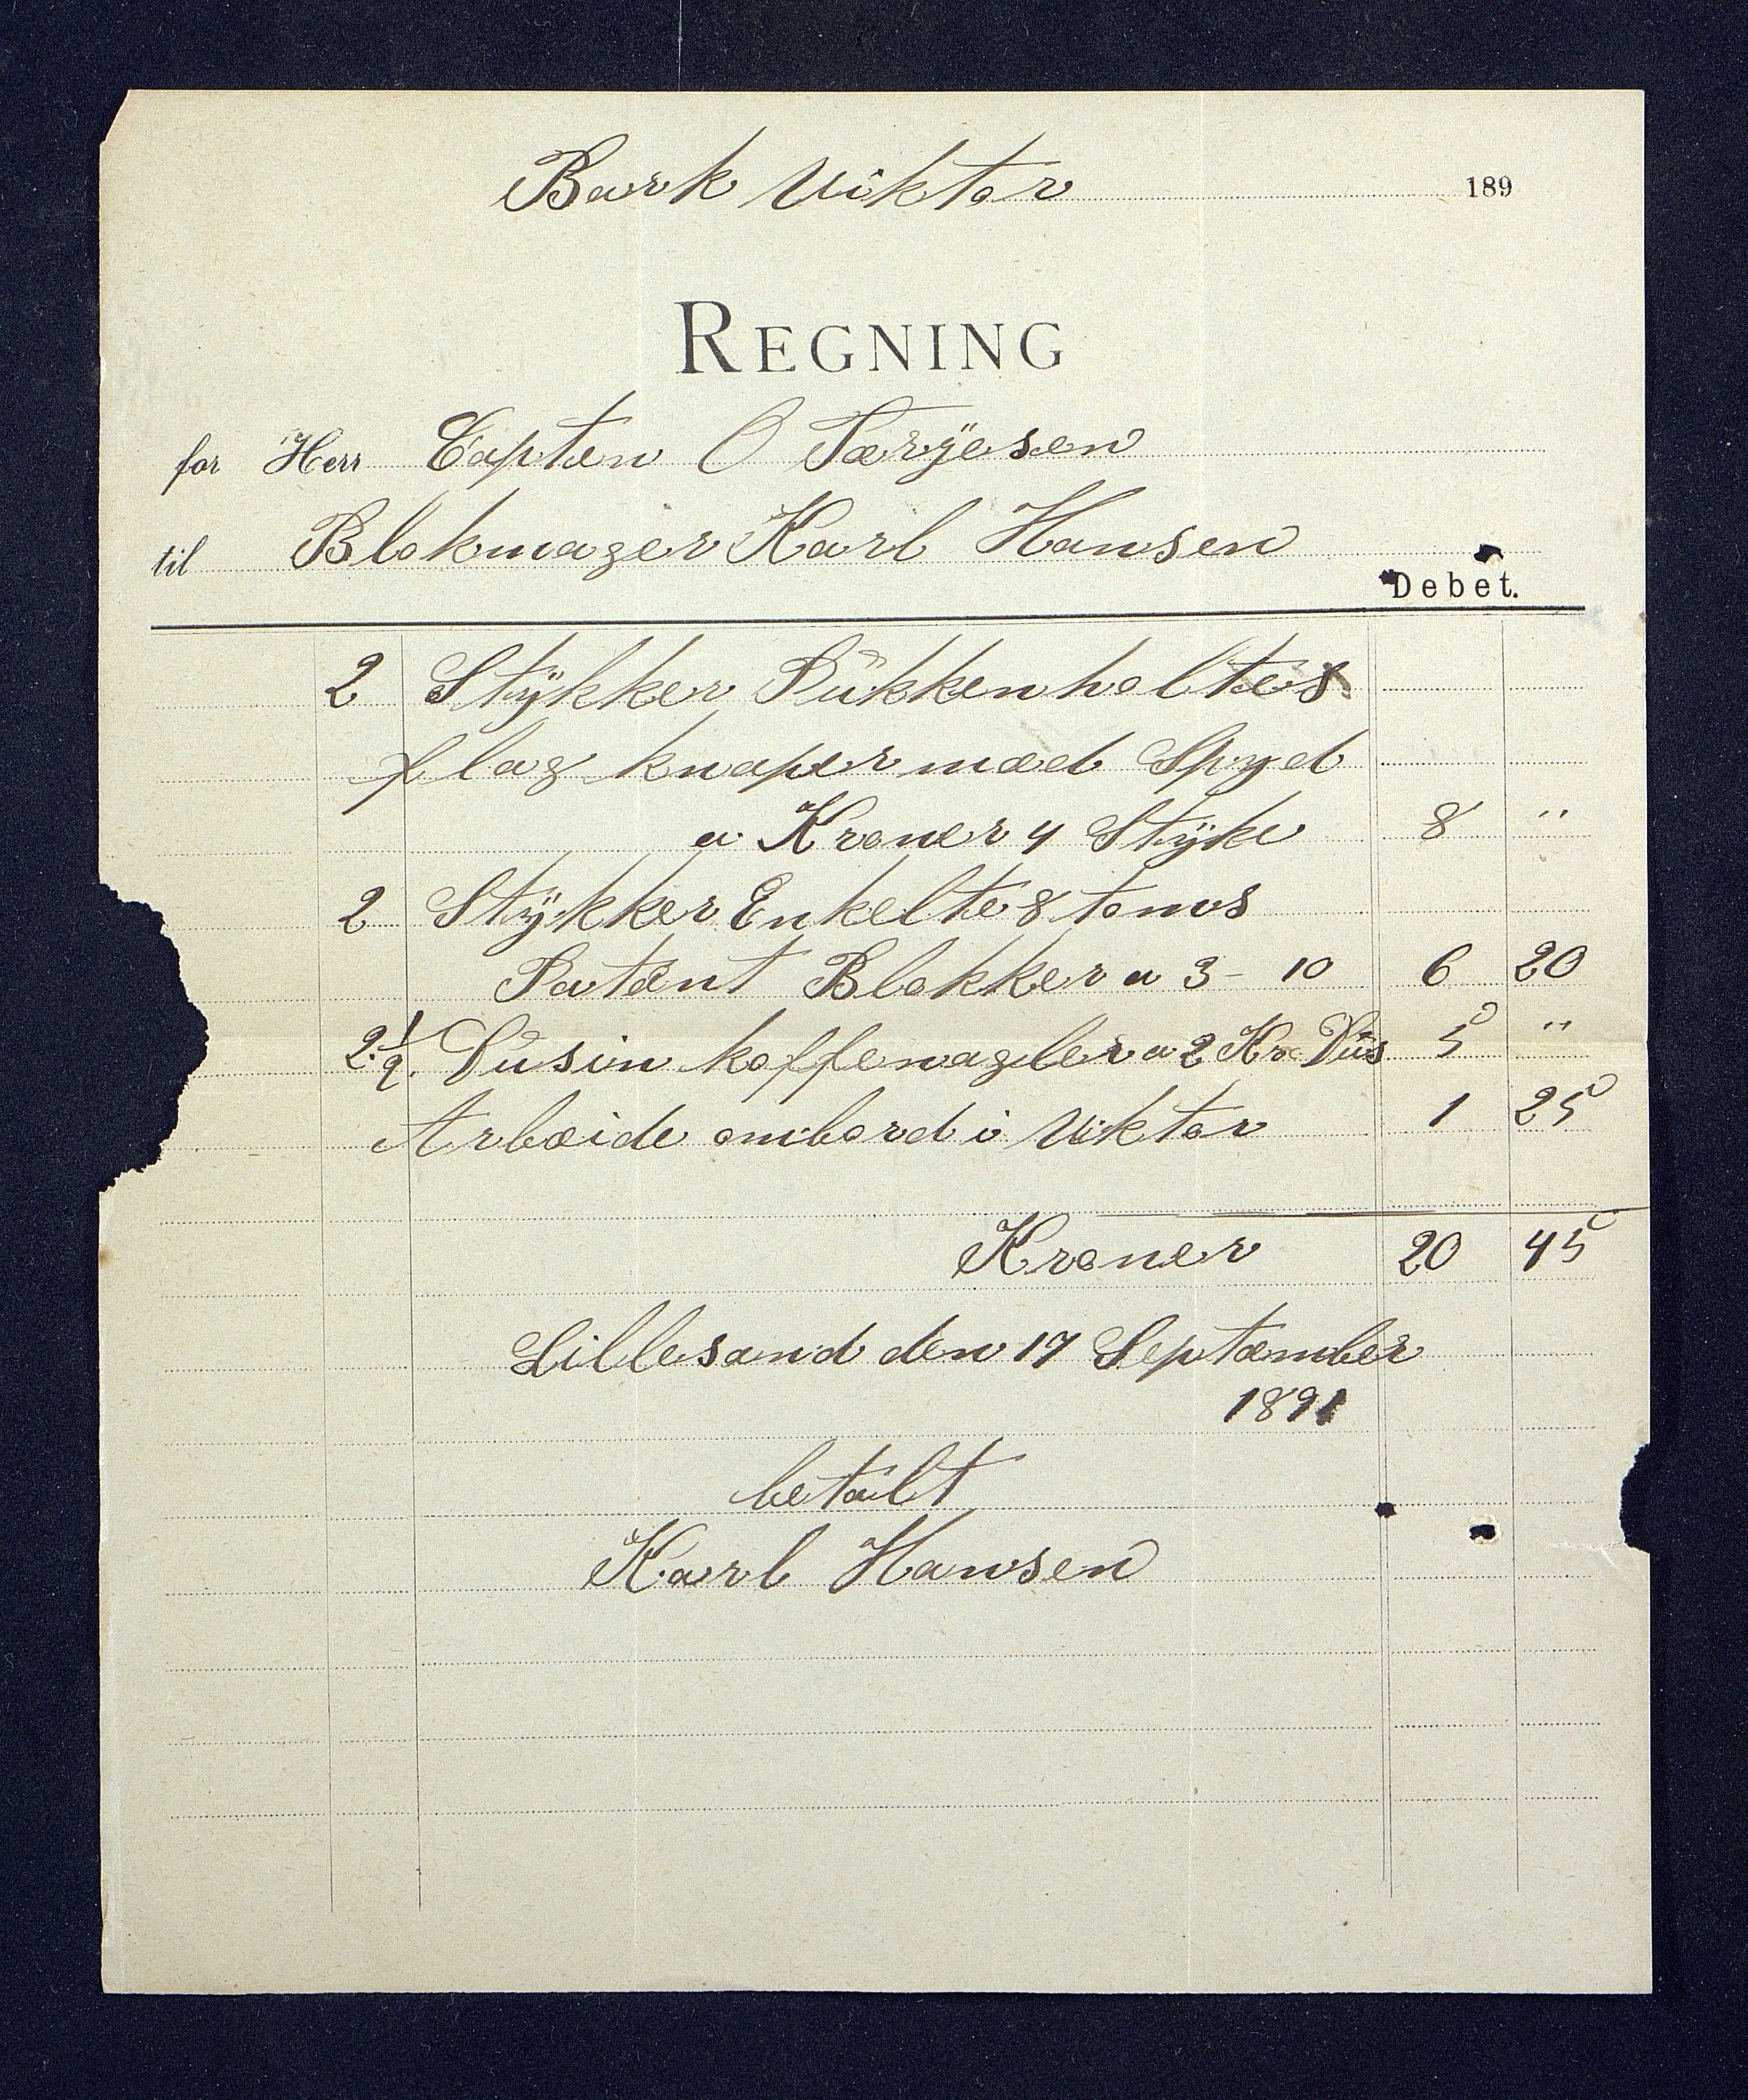 Bark Viktor 189
REGNING
for Herr Capten O Tærjesen
til Blokmager Karl Hansen
Debet.
2 Stykker Pukkenholtes
flag knaper mæd Spyd
a Kroner 4 Styke 8 "
2 Stykker Enkelte 8 toms
Patent Blokker a 3 - 10 6 20
2 1/2 Dusin koffenagler a 2 Kr Dus 5 "
Arbeide ombord i Viktor 1 25
Kroner 20 45
Lillesand den 17 Septæmber
1891
betalt
Karl Hansen